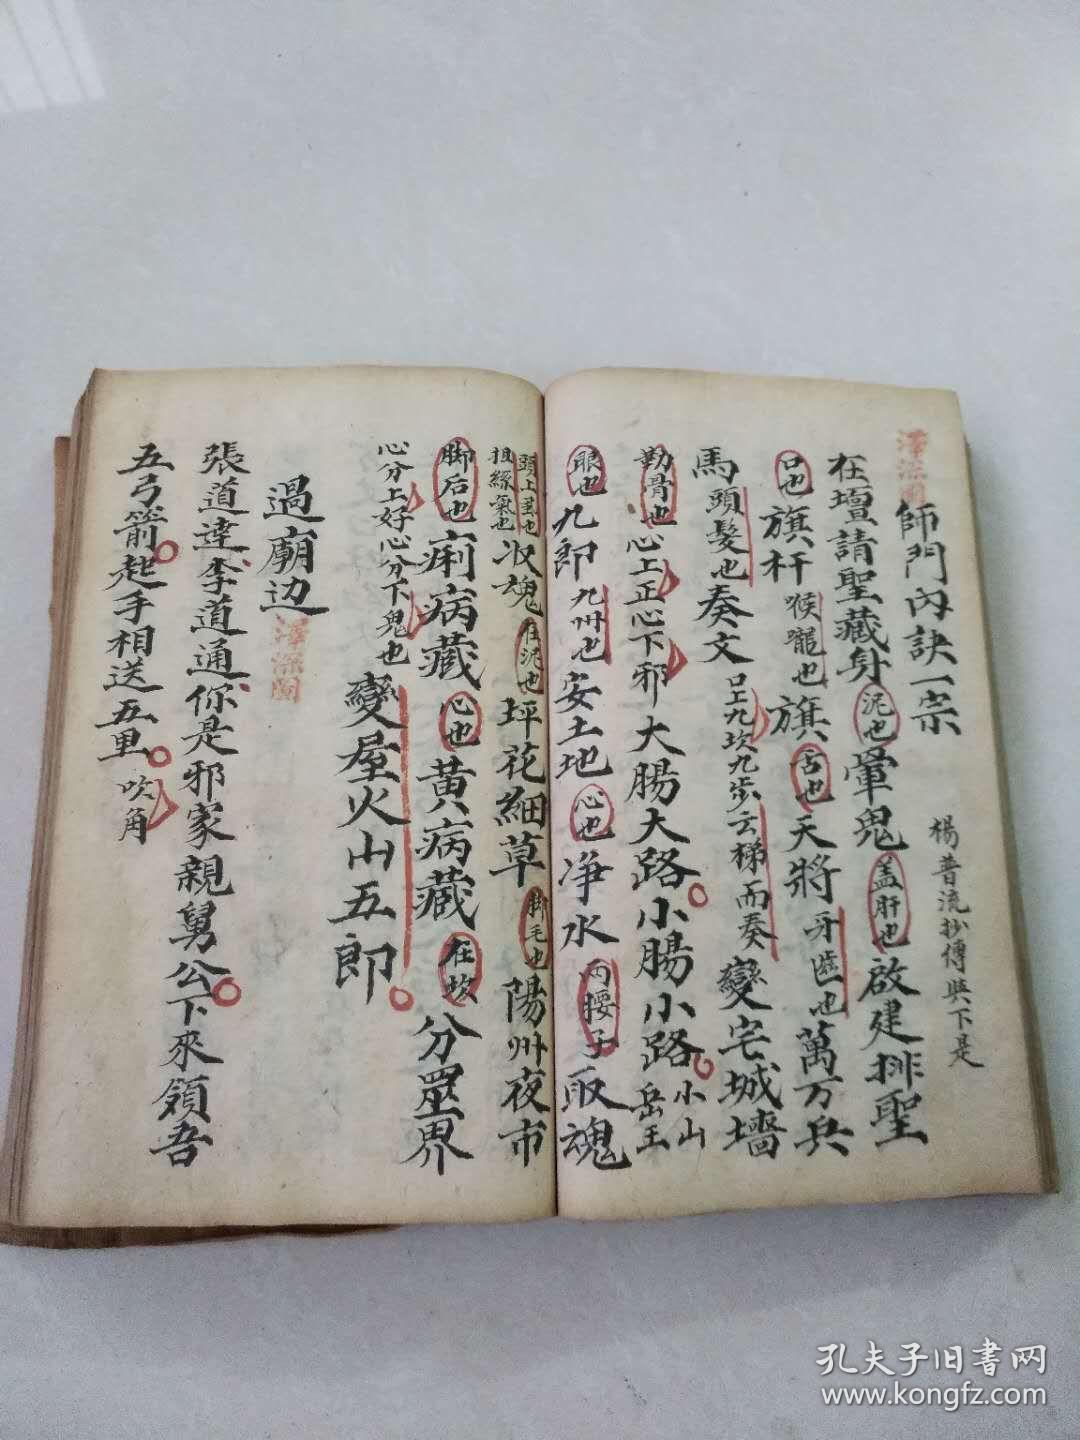 師門內訣一宗 楊普流抄傳與下是
在壇請聖藏身 泥也 暈鬼 盖肝也 啟建排聖
口也 旗杆 喉嚨也 旗 舌也 天將 牙 也 萬万兵
馬 頭髮也 奏文 口上九坎九步云梯而奏 變宅城墻
勒骨也 心上正心下邪 大腸大路 小腸小路 小山岳王
眼也 九郎 九州也 安土地 心也 净水 两腰子 取魂
頭上 也 祖綵氣也 收魂 在泥也 坪花細草 脚毛也 陽州夜市
脚后也 痢病藏 心也 黄病藏 在坎 分眾界
心分上好心分下鬼也 變屋火山五郎
過廟边
張道達李道通你是邪家親舅公下來領吾
五弓箭起手相送五里 吹角
澤深圖
澤深圖
孔夫子旧書网
www.kongfz.com